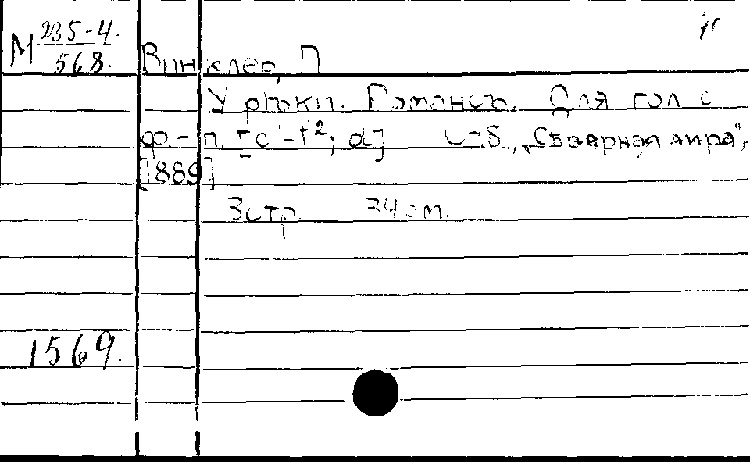 М 235-4
568.
Винклер, П
У реки. Романсъ. Для гол с
ф.-п. [c'-f²; d] С-пб., „Северная лира",
[1889]
3 стр. 34 см.
1569.